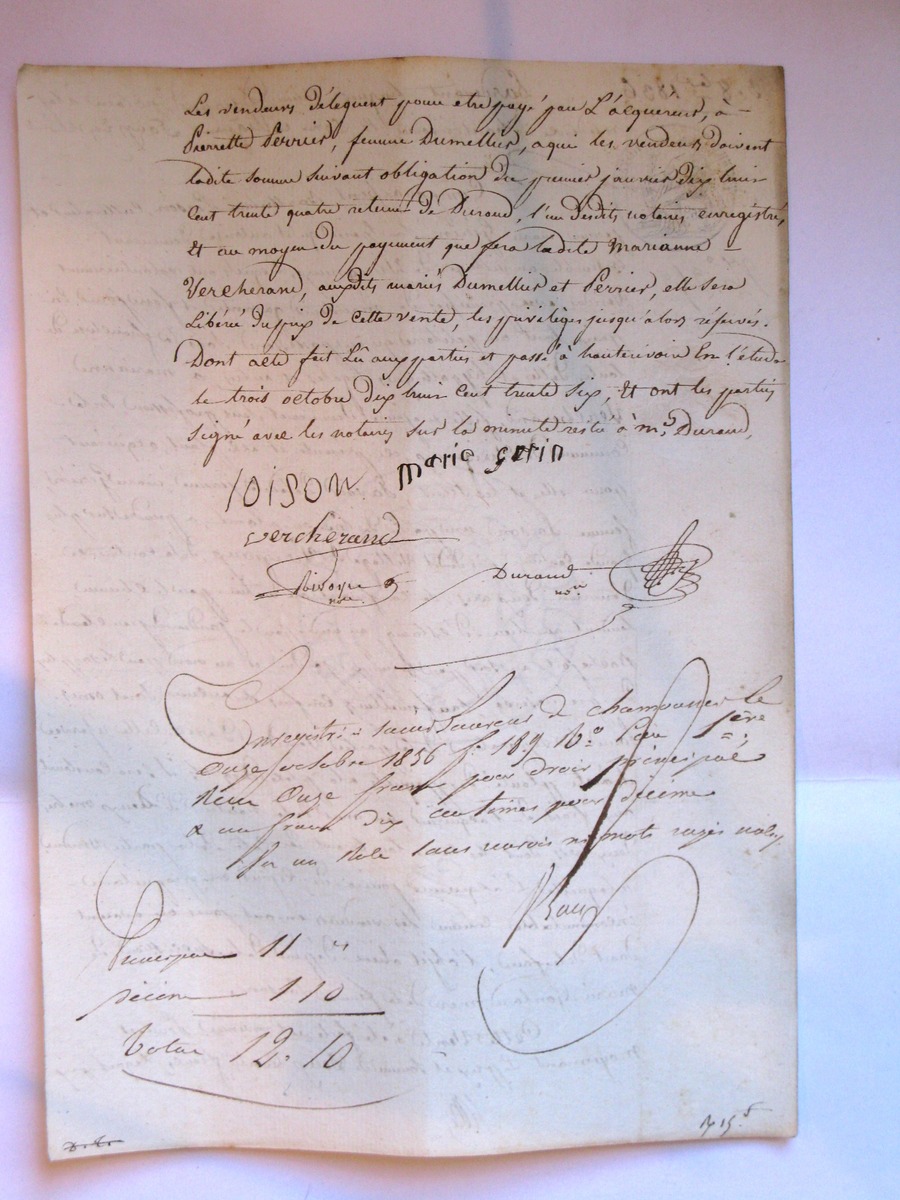 Les vendeurs déleguent pour etre payé par L'acquereur, à
Pierrette Perrier, femme Dumellier, a qui les vendeurs doivent
ladite somme suivant obligation du premier janvier dix huit
Cent trente quatre retenue de Durand, l'un desdits notaires enregistrée,
Et au moyen du payement que fera ladite Marianne
Vercherand, auxdits mariés Dumellier et Perrier, elle sera
Libéré du prix de cette vente, les privilèges jusqu'alors réservés.
Dont acte fait Lû aux parties et passé à hauterivoire En l'étude
le trois octobre dix huit Cent trente six, Et ont les parties
signé avec les notaires sur la minute resté à Me Durand,
loison marie gerin
vercherand
nore Durand nore
Enregistré à saint Laurent de chamousset le
Onze octobre 1836 fo 189 Ro Case 1ere
Reçu Onze francs pour droit principal
& un franc dix centimes pour décime
Sur un Role sans renvois ni mots rayés
Principal 11 "
Décime 1 10
Total 12. 10